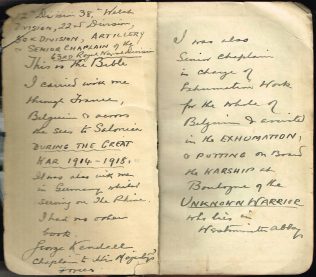 2nd Division, 38th Welch
Division, 22nd Division,
60th DIVISION, ARTILLERY
& SENIOR CHAPLAIN of the
63RD Royal Naval Division
This is the Bible
I carried with me
through France,
Belgium & across
the seas to Salonica
DURING THE GREAT
WAR 1914-1918.
It was also with me
in Germany whilst
serving on the Rhine.
I had no other
book.
George Kendall
Chaplain to His Majesty's
Forces
I was also
Senior Chaplain
in charge of
Exhumation Work
for the whole of
Belgium & assisted
in the EXHUMATION,
& PUTTING on Board
the WARSHIP at
Boulogne of the
UNKNOWN WARRIOR
who lies in
Westminster Abbey